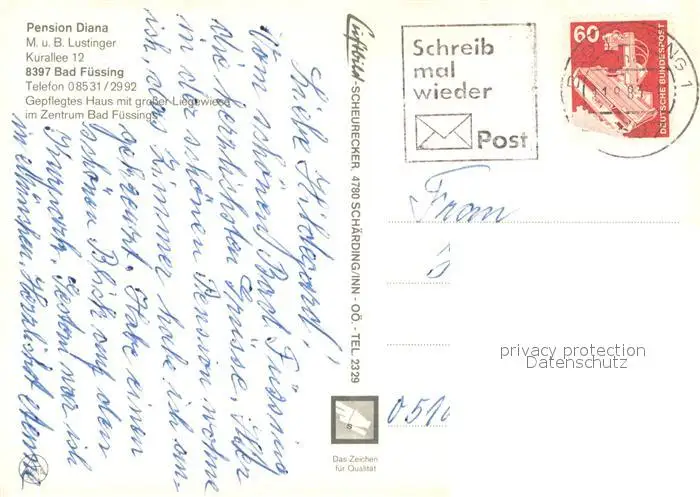 Pension Diana
M. u. B. Lustinger
Kurallee 12
8397 Bad Füssing
Telefon 08531/2992
Gepflegtes Haus mit großer Liegewiese
im Zentrum Bad Füssing
Liebe Hildegard!
Vom schönen Bad Füssing
die herzlichsten Grüsse. Hier
in der schönen Pension wohne
ich, das Zimmer habe ich
Habe einen
schönen Blick auf den
Kurpark. Gestern war ich
in München. Herzlichst
Luftbild-SCHEURECKER, 4780 SCHÄRDING/INN - OÖ. - TEL. 2329
Das Zeichen
für Qualität
Schreib
mal
wieder
Post
60
DEUTSCHE BUNDESPOST
Frau
privacy protection
Datenschutz